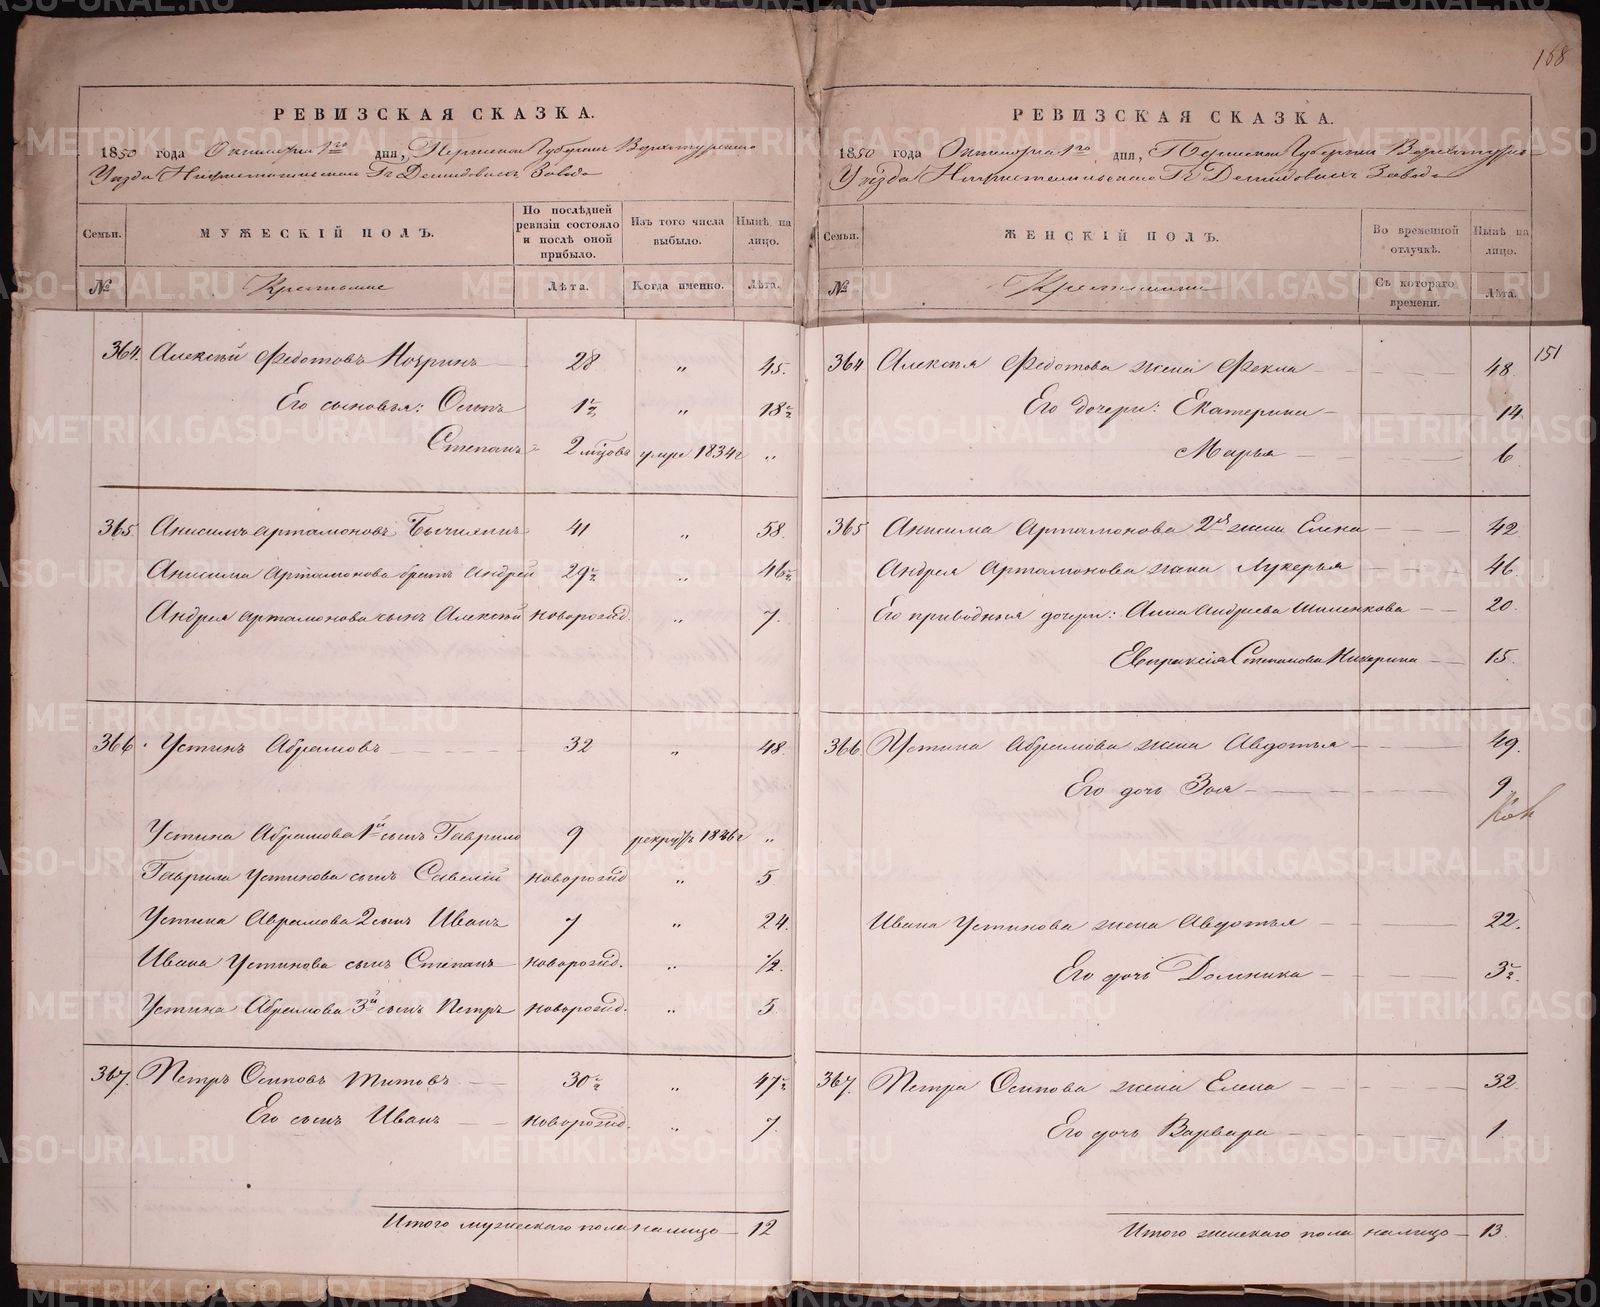 168
РЕВИЗСКАЯ СКАЗКА.
1850 года Октября 1го дня, Пермской Губернии Верхотурскаго
Уѣзда Нижнетагильскаго Гг Демидовыхъ Завода
Семьи. МУЖЕСКІЙ ПОЛЪ. По послѣдней ревизіи состояло и послѣ оной прибыло. Изъ того числа выбыло. Нынѣ на лицо.
№ Крестьяне Лѣта. Когда именно. Лѣта.
364. Алексѣй Федотовъ 28 " 45.
Его сыновья: Осипъ 1½ " 18½
Степанъ 2 мѣсяцовъ умре 1834г "
365 Анисимъ Артамоновъ 41 " 58.
Анисима Артамонова братъ Андрей 29½ " 46½
Андрея Артамонова сынъ Алексѣй новорожд. " 7.
366. Устинъ Абрамовъ 32 " 48
Устина Абрамова 1й сынъ Гаврило 9 рекрутъ 1836г "
Гаврила Устинова сынъ Савелій новорожд " 5
Устина Аврамова 2 сынъ Иванъ 7 " 24.
Ивана Устинова сынъ Степанъ новорожд. " ½.
Устина Абрамова 3й сынъ Петръ новорожд. " 5
367. Петръ Осиповъ Титовъ 30½ " 47½
Его сынъ Иванъ новорожд. " 7
Итого мужескаго пола налицо 12
РЕВИЗСКАЯ СКАЗКА.
1850 года Октября 1го дня, Пермской Губернии Верхотурск.
Уѣзда Нижнетагильскаго Гг Демидовыхъ Завода
Семьи. ЖЕНСКІЙ ПОЛЪ. Во временной отлучкѣ. Нынѣ на лицо.
№ Крестьянки Съ котораго времени. Лѣта.
151
364 Алексѣя Федотова жена Фекла 48
Его дочери: Екатерина 14
Марья 6
365 Анисима Артамонова 2я жена Елена 42
Андрея Артамонова жена Лукерья 46.
Его приводныя дочери: Анна Андреева 20.
Евпраксія Степанова 15.
366. Устина Абрамова жена Авдотья 49.
Его дочь Зоя 9
Ивана Устинова жена Авдотья 22.
Его дочь Домника 3½.
367. Петра Осипова жена Елена 32
Его дочь Варвара 1.
Итого женскаго пола налицо 13.
METRIKI.GASO-URAL.RU